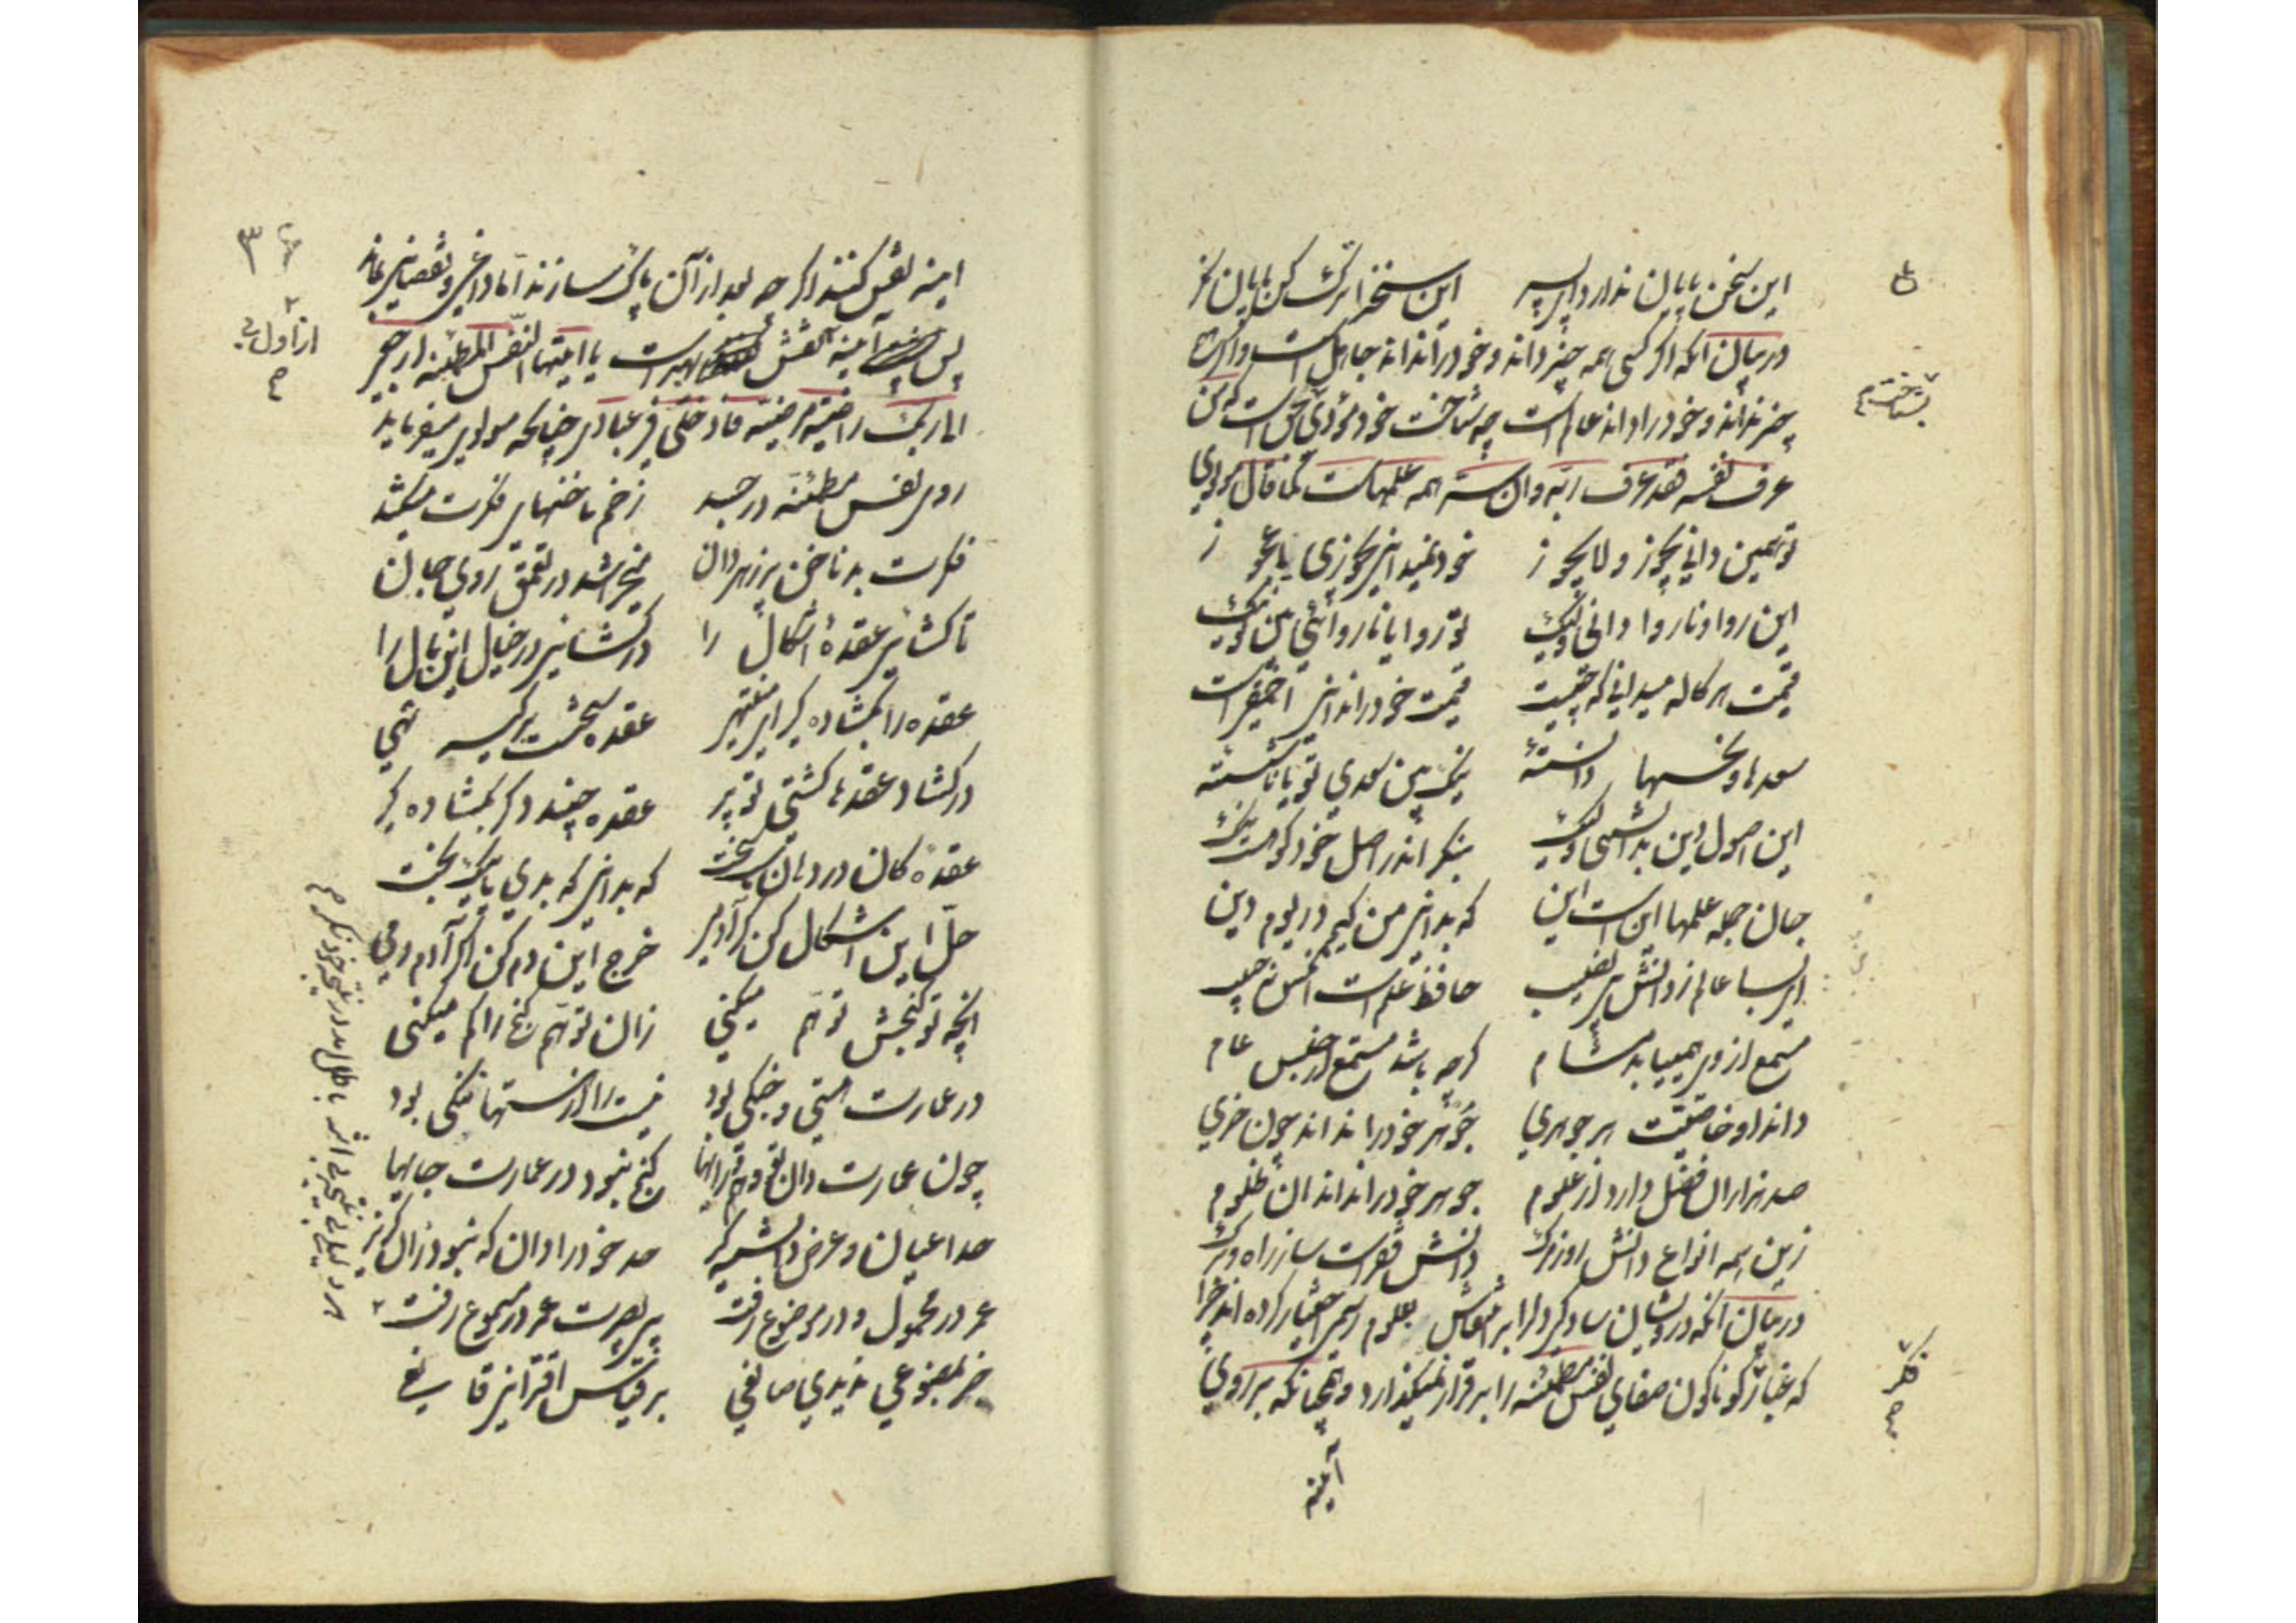 این سخن پایان ندارد ای پسر این سخن را ترک کن پایان نگر
در بیان آنکه اگر کسی همه چیز داند و خود را نداند جاهل است و اگر هیچ
چیز نداند و خود را داند عالم است چه شناخت خود مؤدّی حق است که من
عرف نفسه فقد عرف ربّه و آن سرِ همه علمهاست کما قال مولوی
تو همین دانی یجوز و لا یجوز خود نمیدانی یجوزی یا عجوز
این روا و ناروا دانی ولیک تو روا یا ناروائی بین تو نیک
قیمت هر کاله میدانی که چیست قیمت خود را ندانی احمقیست
سعدها و نحسها دانستهٔ ننگری سعدی تو یا ناشسته
این اصول دین بدانستی ولیک بنگر اندر اصل خود کو هست نیک
جان جمله علمها این است این که بدانی من کیم در یوم دین
ای بسا عالم ز دانش بی نصیب حافظ علم است آنکس نه حبیب
مستمع از وی همییابد مشام گرچه باشد مستمع از جنس عام
داند او خاصیّت هر جوهری جوهر خود را نداند چون خری
صد هزاران فضل دارد از علوم جوهر خود را نداند آن ظلوم
زین همه انواع دانش روز مرگ دانش فقرست ساز راه و برگ
در بیان آنکه درویشان سادگی دل را بر انتقاش بعلوم رسمی اختیار کرده اند چرا
که غبار گوناگون صفای نفس مطمئنه را برقرار نمیگذارد و همچنانکه بر روی
آینه
۳۶
آینه نقش کنند اگرچه بعد از آن پاک سازند امّا داغی و نقصانی بماند
پس آینه نقش بهتر است یا ایّتها النّفس المطمئنه ارجعی
الی ربّک راضیة مرضیّة فادخلی فی عبادی چنانکه مولوی میفرماید
روی نفس مطمئنه در جسد زخم ناخنهای فکرت میکشد
فکرت بد ناخن پر زهر دان میخراشد در تعمّق روی جان
تا گشائی عقدهٔ اشکال را در گشایی در خیال این بال را
عقده را بگشاده گیر ای منتهی عقدهٔ سختست بر کیسه تهی
در گشاد عقدها گشتی تو پیر عقدهٔ چند دگر بگشاده گیر
عقدهٔ کان در دهان سخت که بدانی که بدی یا نیک بخت
حلّ این اشکال کن گر آدمی خرج این دم کن اگر آدم دمی
آنچه تو گنجش توهّم میکنی زان توهّم گنج را گم میکنی
در عمارت هستی و جنگی بود نیست را از هستها ننگی بود
چون عمارت دان تو وهم و رایها گنج نبود در عمارت جایها
حد اعیان و عرض دانسته گیر حد خود را دان که نبود زان گزیر
عمر در محمول و در موضوع رفت بی بصیرت عمر در مسموع رفت
جز بمصنوعی ندیدی صانعی بر قیاس اقترانی قانعی